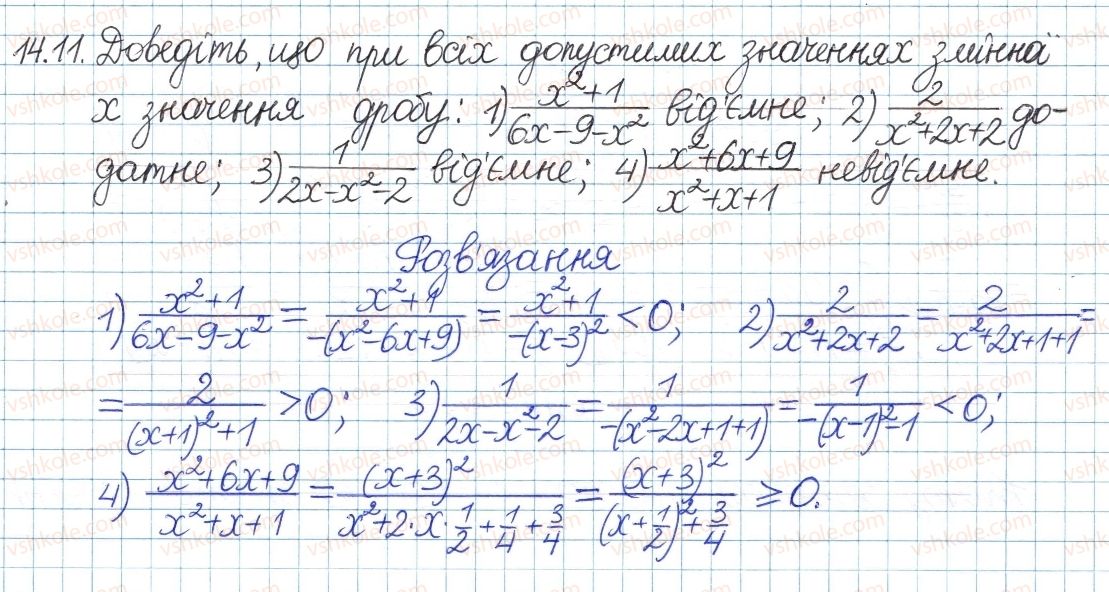 14.11. Доведіть, що при всіх допустимих значеннях змінної
x значення дробу: 1) (x²+1)/(6x-9-x²) від'ємне; 2) 2/(x²+2x+2) до-
датне; 3) 1/(2x-x²-2) від'ємне; 4) (x²+6x+9)/(x²+x+1) невід'ємне.
Розв'язання
1) (x²+1)/(6x-9-x²) = (x²+1)/(-(x²-6x+9)) = (x²+1)/(-(x-3)²) < 0; 2) 2/(x²+2x+2) = 2/(x²+2x+1+1) =
= 2/((x+1)²+1) > 0; 3) 1/(2x-x²-2) = 1/(-(x²-2x+1+1)) = 1/(-(x-1)²-1) < 0;
4) (x²+6x+9)/(x²+x+1) = (x+3)²/(x²+2·x·1/2+1/4+3/4) = (x+3)²/((x+1/2)²+3/4) ≥ 0.